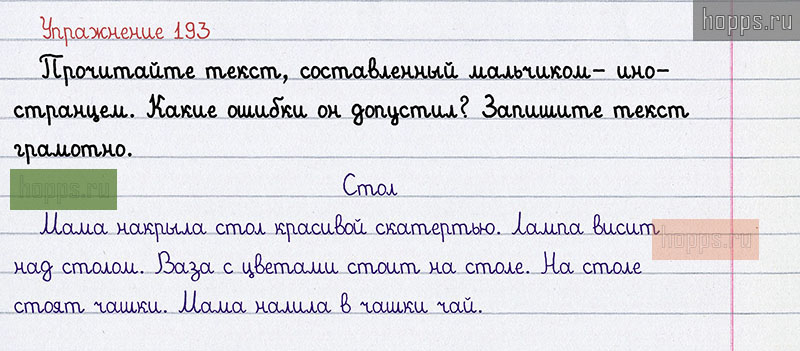 hopps.ru
Упражнение 193
Прочитайте текст, составленный мальчиком- ино-
странцем. Какие ошибки он допустил? Запишите текст
грамотно.
hopps.ru
Стол
Мама накрыла стол красивой скатертью. Лампа висит
hopps.ru
над столом. Ваза с цветами стоит на столе. На столе
стоят чашки. Мама налила в чашки чай.